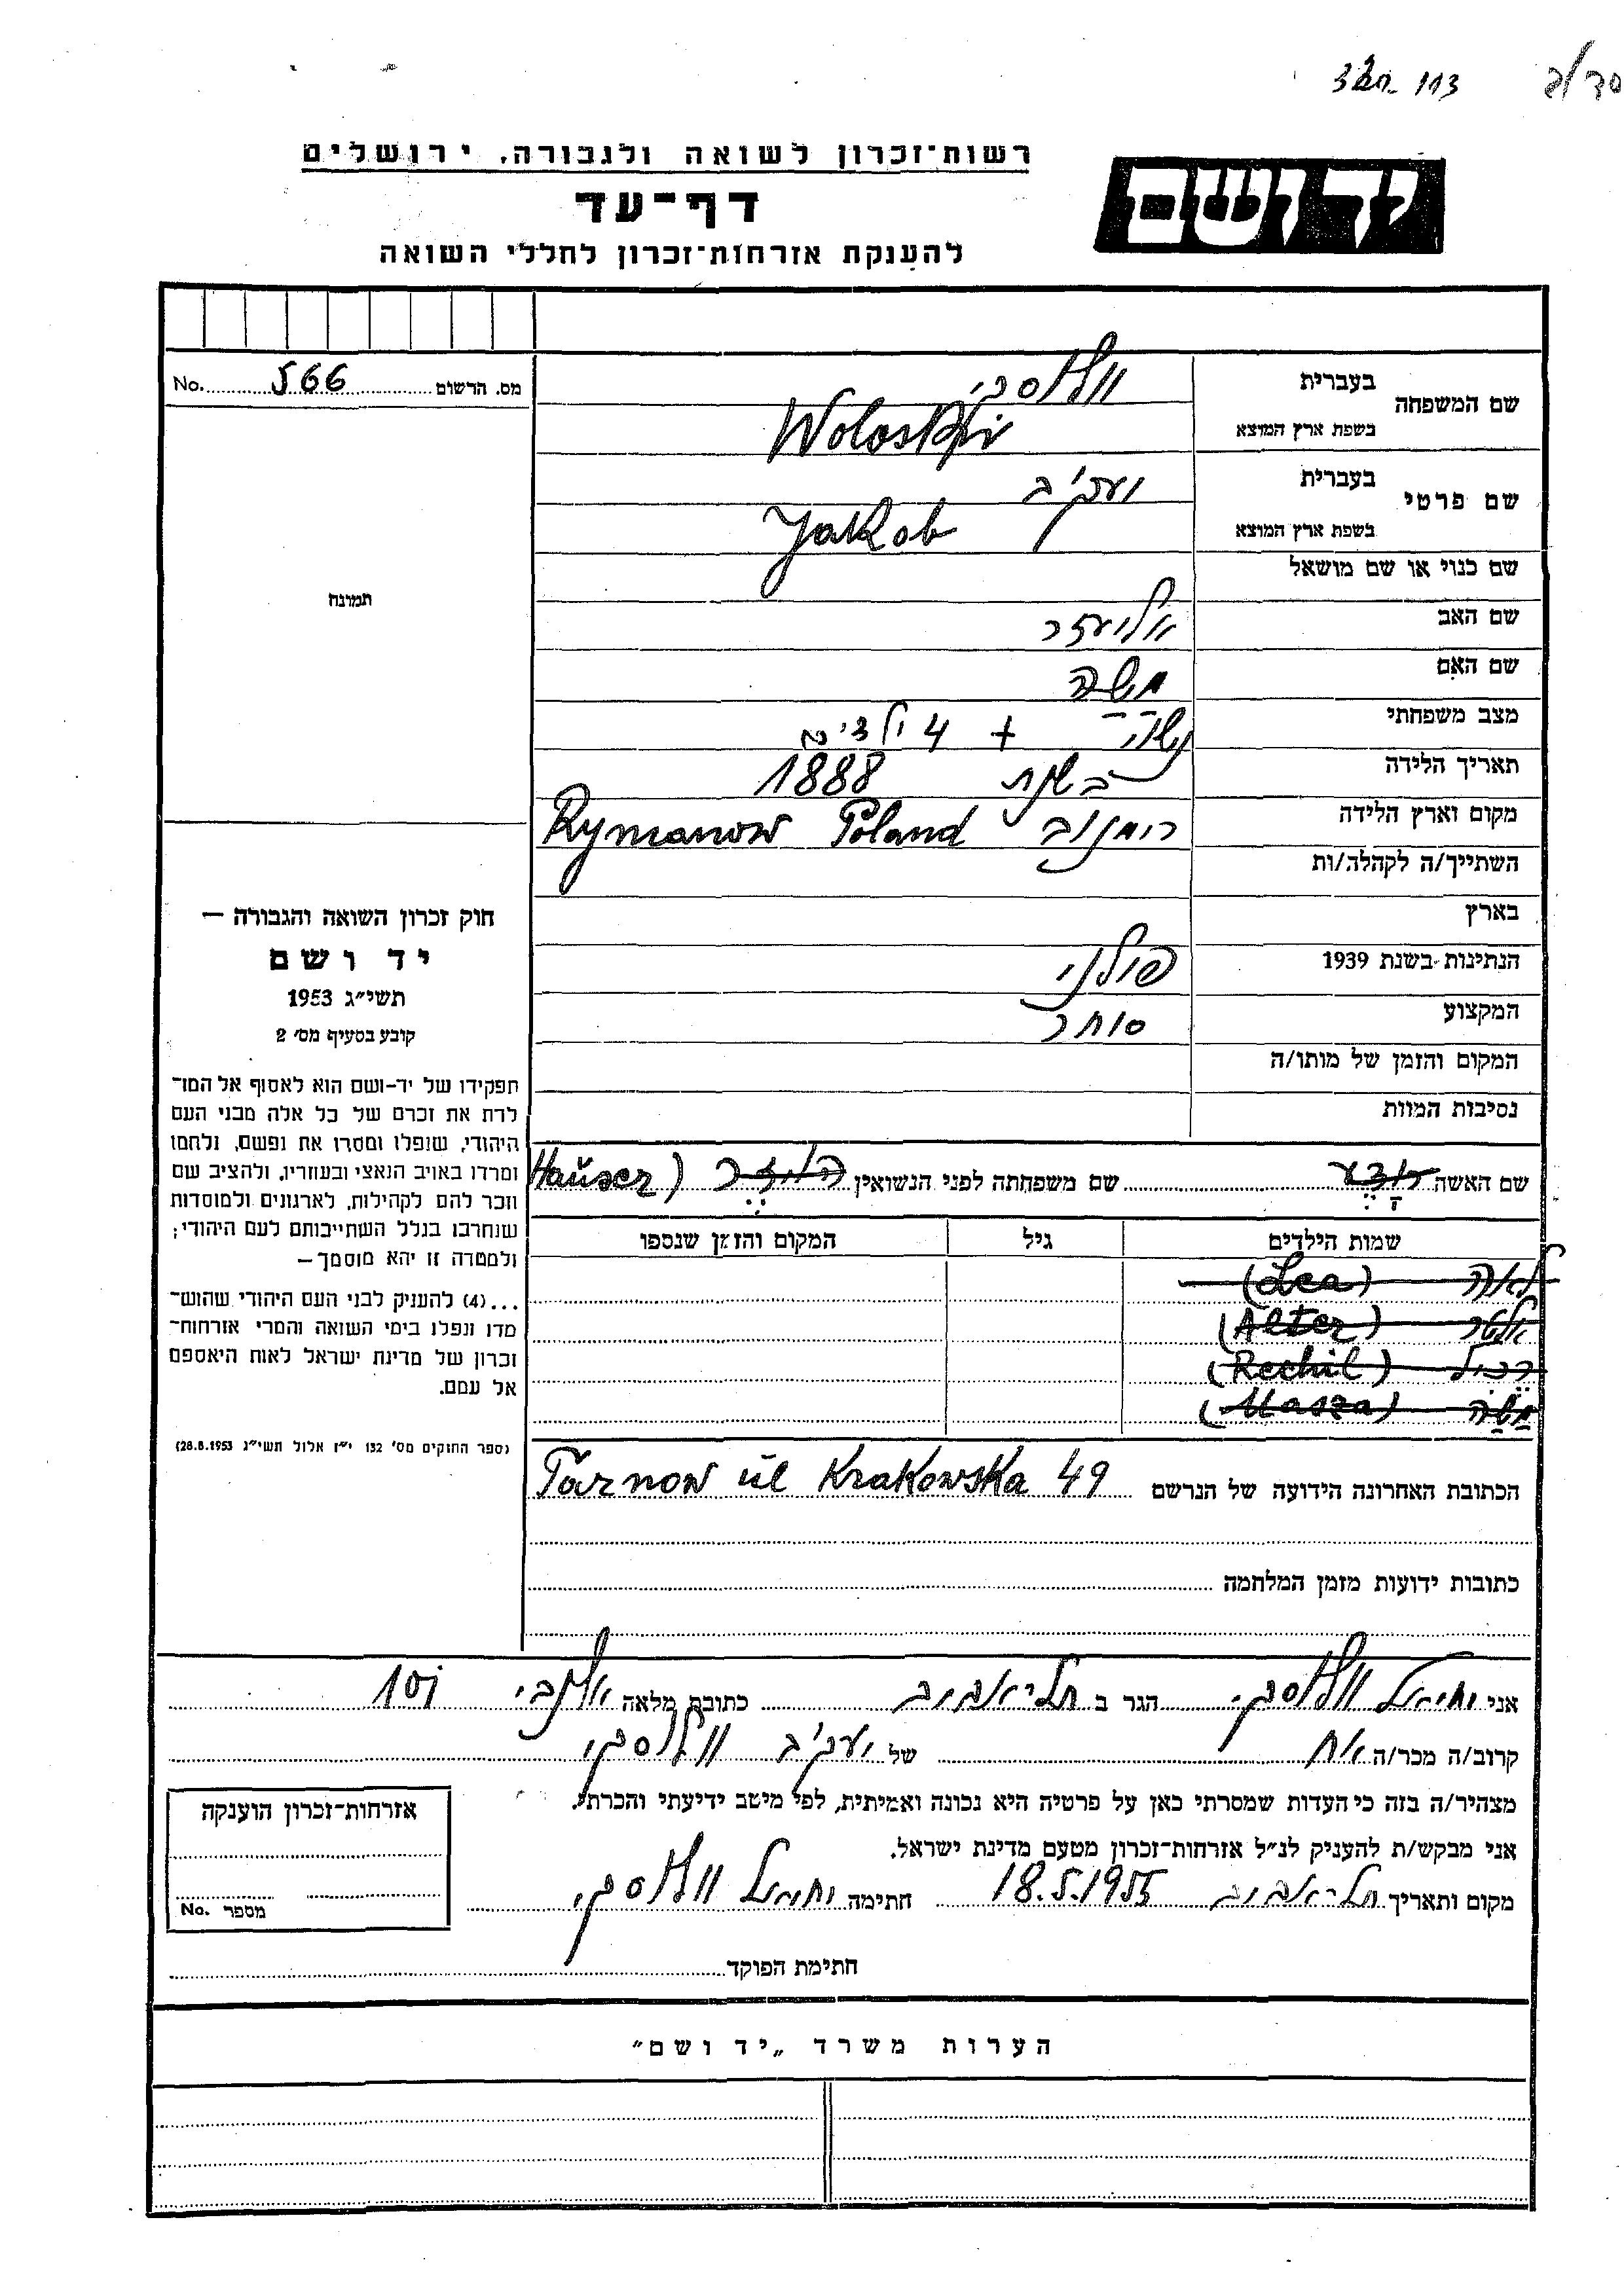 רשות־זכרון לשואה ולגבורה, ירושלים
יד ושם
דף־עד
להענקת אזרחות־זכרון לחללי השואה
מס. הרשום 566 No.
שם המשפחה
בעברית
בשפת ארץ המוצא Woloski
שם פרטי
בעברית יעקב
בשפת ארץ המוצא Jakob
שם כנוי או שם מושאל
שם האב אליעזר
שם האם משה
מצב משפחתי נשוי + 4 ילדים
תאריך הלידה בשנת 1888
מקום וארץ הלידה רימנוב Rymanow Poland
השתייך/ה לקהלה/ות
בארץ
הנתינות בשנת 1939 פולני
המקצוע סוחר
המקום והזמן של מותו/ה
נסיבות המוות
שם האשה שם משפחתה לפני הנשואין הויזר (Hauser
שמות הילדים גיל המקום והזמן שנספו
לאה (Lea)
אלטר (Alter)
רכיל (Rechil)
משה (Masza)
הכתובת האחרונה הידועה של הנרשם Tarnow ul Krakowska 49
כתובות ידועות מזמן המלחמה
תמונה
חוק זכרון השואה והגבורה —
יד ושם
תשי״ג 1953
קובע בסעיף מס׳ 2
תפקידו של יד-ושם הוא לאסוף אל המו־
לדת את זכרם של כל אלה מבני העם
היהודי, שנפלו ומסרו את נפשם, נלחמו
ומרדו באויב הנאצי ובעוזריו, ולהציב שם
וזכר להם לקהילות, לארגונים ולמוסדות
שנחרבו בגלל השתייכותם לעם היהודי;
ולמטרה זו יהא מוסמך—
...(4) להעניק לבני העם היהודי שהוש־
מדו ונפלו בימי השואה והמרי אזרחות־
זכרון של מדינת ישראל לאות היאספם
אל עמם.
(ספר החוקים מס׳ 132 י״ז אלול תשי״ג 28.8.1953)
אני יחיאל הגר ב תל־אביב כתובת מלאה אלנבי 105
קרוב/ה מכר/ה אח של יעקב
מצהיר/ה בזה כי העדות שמסרתי כאן על פרטיה היא נכונה ואמיתית, לפי מיטב ידיעתי והכרתי.
אני מבקש/ת להעניק לנ״ל אזרחות־זכרון מטעם מדינת ישראל.
מקום ותאריך תל־אביב 18.5.1955 חתימה יחיאל
חתימת הפוקד
אזרחות־זכרון הוענקה
מספר No.
הערות משרד „יד ושם״